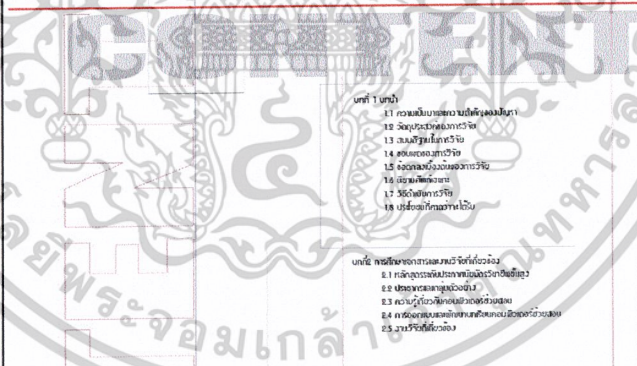 CONTENT
บทที่ 1 บทนำ
1.1 ความเป็นมาและความสำคัญของปัญหา
1.2 วัตถุประสงค์ของการวิจัย
1.3 สมมติฐานในการวิจัย
1.4 ขอบเขตของการวิจัย
1.5 ข้อตกลงเบื้องต้นของการวิจัย
1.6 นิยามศัพท์เฉพาะ
1.7 วิธีดำเนินการวิจัย
1.8 ประโยชน์ที่คาดว่าจะได้รับ
บทที่2 การศึกษาเอกสารและงานวิจัยที่เกี่ยวข้อง
2.1 หลักสูตรระดับประกาศนียบัตรวิชาชีพชั้นสูง
2.2 ประชากรและกลุ่มตัวอย่าง
2.3 ความรู้เกี่ยวกับคอมพิวเตอร์ช่วยสอน
2.4 การออกแบบและพัฒนาบทเรียนคอมพิวเตอร์ช่วยสอน
2.5 งานวิจัยที่เกี่ยวข้อง